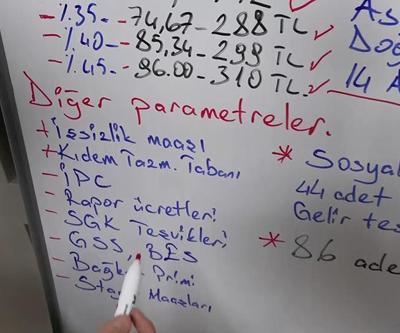 - %35 - - 74,67 - 288 TL ✓
- %40 - - 85,34 - 299 TL ✓
- %45 - - 96.00 - 310 TL ✓
14 A
Diğer parametreler.
+ İşsizlik maaşı
+ Kıdem Tazm. Tabanı
- İPC
- Rapor ücretleri
- SGK Teşvikleri
- GSS, BES
- Primi
- Maaşları
* Sosyal
44 adet
Gelir tes
* 86 ade